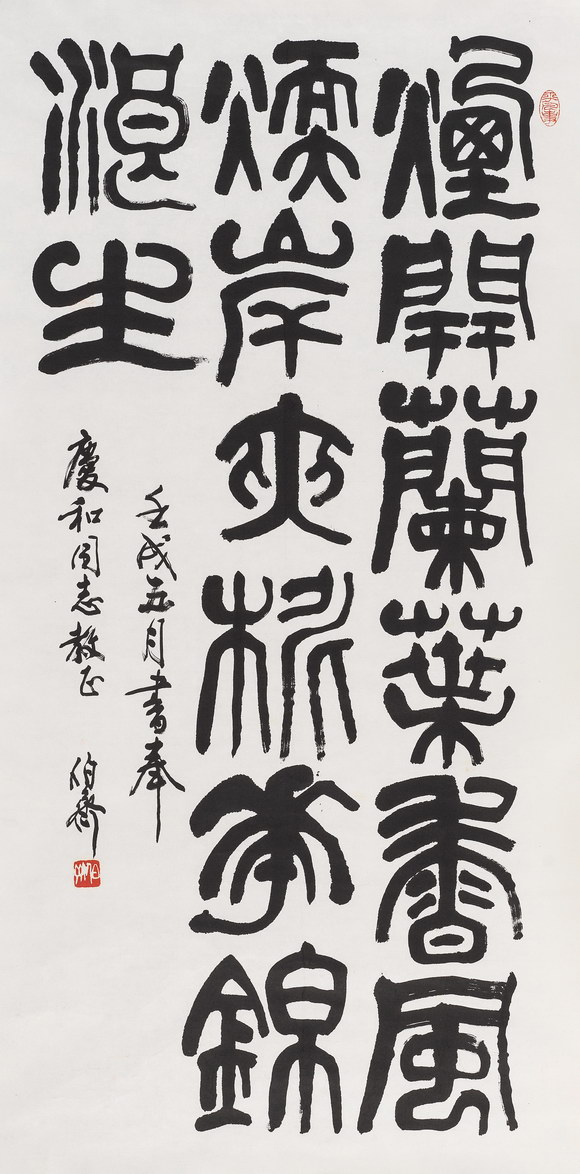 煙開蘭葉香風
煗岸夾桃華錦
浪生
壬戌五月書奉
慶和同志教正 伯齊